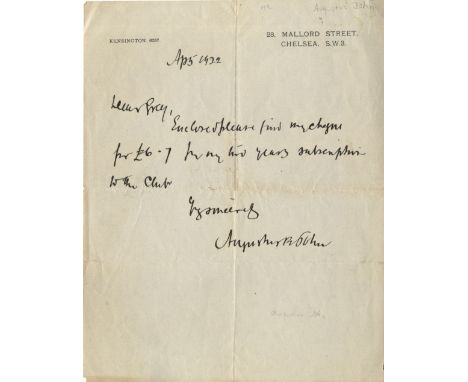 Augustus John
KENSINGTON
28, MALLORD STREET,
CHELSEA, S.W.3.
Ap 5 1922
Dear Grey,
Enclosed please find my cheque
for £6-7 for my two years subscription
to the Club
Yrs sincerely
Augustus E John